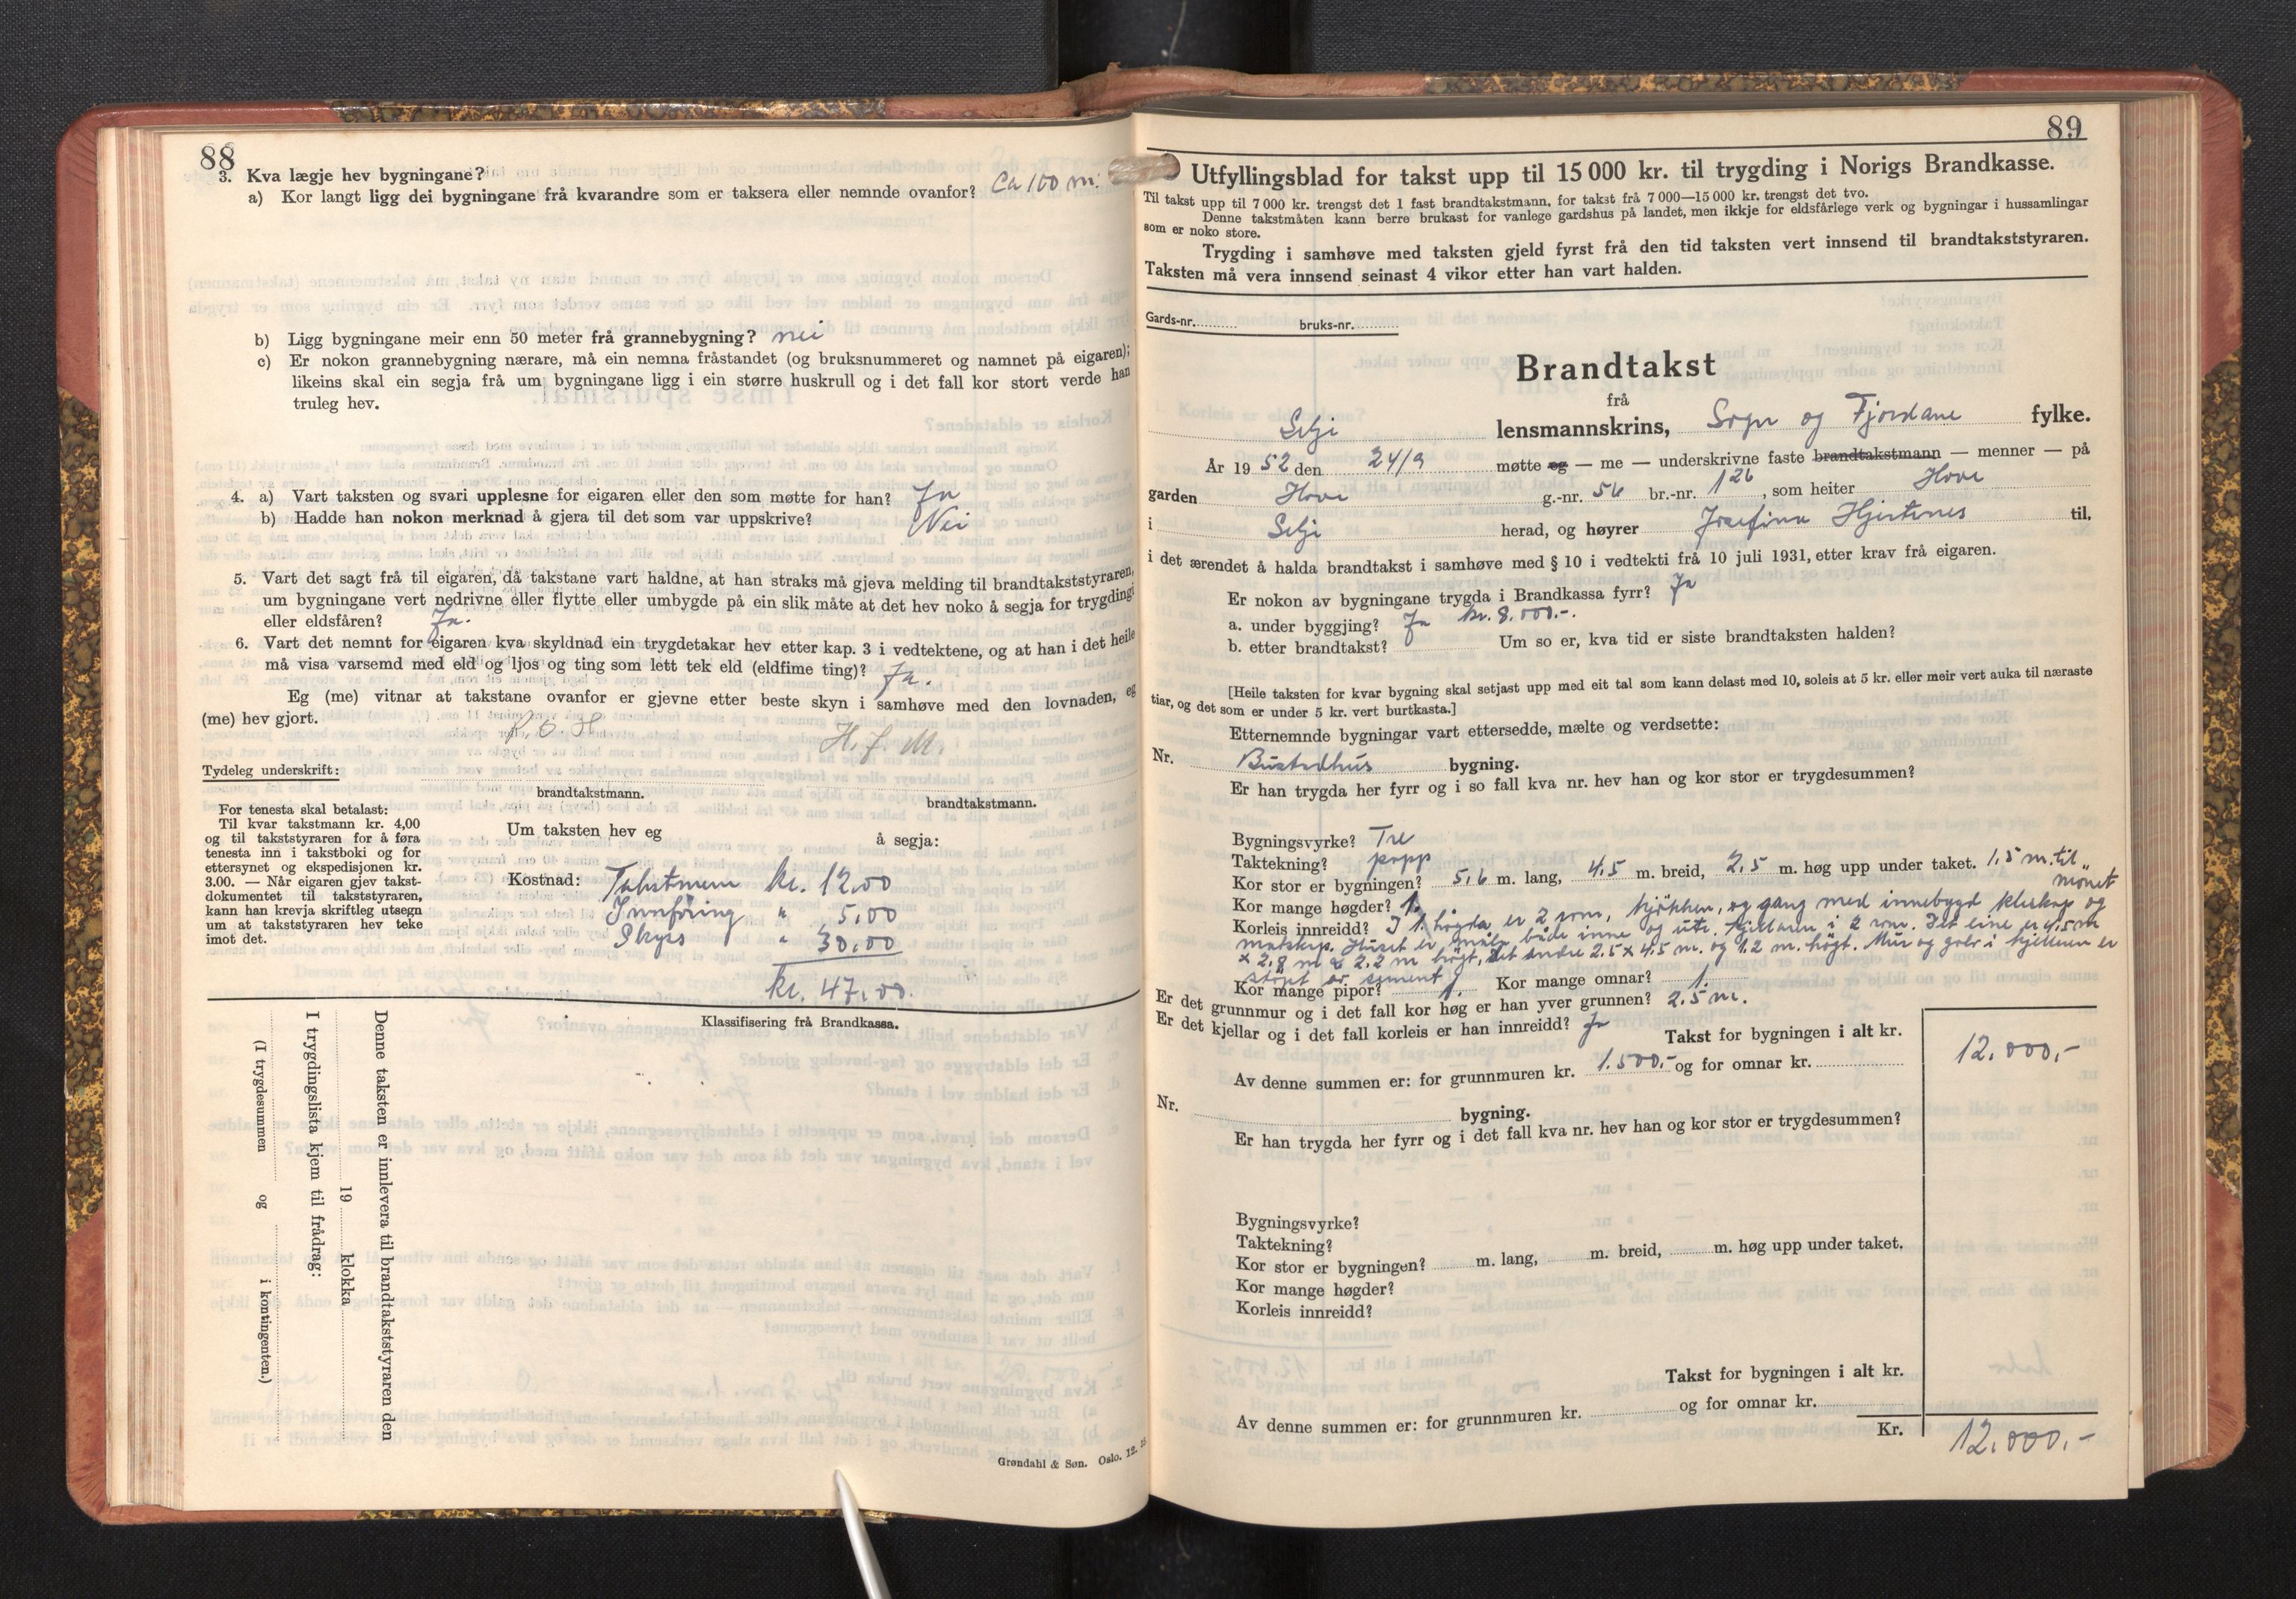 88
3. Kva lægje hev bygningane?
a) Kor langt ligg dei bygningane frå kvarandre som er taksera eller nemnde ovanfor? Ca 100 m.
b) Ligg bygningane meir enn 50 meter frå grannebygning? nei
c) Er nokon grannebygning nærare, må ein nemna fråstandet (og bruksnummeret og namnet på eigaren);
likeins skal ein segja frå um bygningane ligg i ein større huskrull og i det fall kor stort verde han
truleg hev.
4. a) Vart taksten og svari upplesne for eigaren eller den som møtte for han? Ja
b) Hadde han nokon merknad å gjera til det som var uppskrive? Nei
5. Vart det sagt frå til eigaren, då takstane vart haldne, at han straks må gjeva melding til brandtakststyraren,
um bygningane vert nedrivne eller flytte eller umbygde på ein slik måte at det hev noko å segja for trygdingi
eller eldsfåren? Ja.
6. Vart det nemnt for eigaren kva skyldnad ein trygdetakar hev etter kap. 3 i vedtektene, og at han i det heile
må visa varsemd med eld og ljos og ting som lett tek eld (eldfime ting)? Ja.
Eg (me) vitnar at takstane ovanfor er gjevne etter beste skyn i samhøve med den lovnaden, eg
(me) hev gjort.
K. O. H. H. J. M.
Tydeleg underskrift:
brandtakstmann. brandtakstmann.
For tenesta skal betalast:
Til kvar takstmann kr. 4,00
og til takststyraren for å føra
tenesta inn i takstboki og for
ettersynet og ekspedisjonen kr.
3.00. — Når eigaren gjev takst-
dokumentet til takststyraren,
kann han krevja skriftleg utsegn
um at takststyraren hev teke
imot det.
Um taksten hev eg å segja:
Kostnad: Takstmenn kr. 12.00
Innføring " 5,00
Skyss " 30.00
kr. 47.00.
Klassifisering frå Brandkassa.
Denne taksten er innlevera til brandtakststyraren den
19 klokka
I trygdingslista kjem til frådrag:
(I trygdesummen og i kontingenten.)
Grøndahl & Søn. Oslo. 12.
89
Utfyllingsblad for takst upp til 15 000 kr. til trygding i Norigs Brandkasse.
Til takst upp til 7 000 kr. trengst det 1 fast brandtakstmann, for takst frå 7 000—15 000 kr. trengst det tvo.
Denne takstmåten kann berre brukast for vanlege gardshus på landet, men ikkje for eldsfårlege verk og bygningar i hussamlingar
som er noko store.
Trygding i samhøve med taksten gjeld fyrst frå den tid taksten vert innsend til brandtakststyraren.
Taksten må vera innsend seinast 4 vikor etter han vart halden.
Gards-nr. bruks-nr.
Brandtakst
frå
Selje lensmannskrins, Sogn og Fjordane fylke.
År 1952 den 24/9 møtte og — me — underskrivne faste brandtakstmann — menner — på
garden Hove g.-nr. 56 br.-nr. 126, som heiter Hove
i Selje herad, og høyrer Josefine Hjertenes til,
i det ærendet å halda brandtakst i samhøve med § 10 i vedtekti frå 10 juli 1931, etter krav frå eigaren.
Er nokon av bygningane trygda i Brandkassa fyrr? Ja
a. under byggjing? Ja kr. 8.000.-.
b. etter brandtakst? Um so er, kva tid er siste brandtaksten halden?
[Heile taksten for kvar bygning skal setjast upp med eit tal som kann delast med 10, soleis at 5 kr. eller meir vert auka til næraste
tiar, og det som er under 5 kr. vert burtkasta.]
Etternemnde bygningar vart ettersedde, mælte og verdsette:
Nr. Bustadhus bygning.
Er han trygda her fyrr og i so fall kva nr. hev han og kor stor er trygdesummen?
Bygningsvyrke? Tre
Taktekning? papp
Kor stor er bygningen? 5,6 m. lang, 4.5 m. breid, 2,5 m. høg upp under taket. 1,5 m. til
mønet
Kor mange høgder? 1.
Korleis innreidd? I 1. høgda er 2 rom, kjøkken, og gang med innebygd kleskap og
matskap. Huset er måla både inne og ute. Kjellaren i 2 rom. Det eine er 4.5 m
x 2,8 m & 2,2 m høgt, det andre 2.5 x 4.5 m. og 1.2 m. høgt. Mur og golv i kjellaren er
støypt av sement
Kor mange pipor? 1. Kor mange omnar? 1.
Er det grunnmur og i det fall kor høg er han yver grunnen? 2.5 m.
Er det kjellar og i det fall korleis er han innreidd? Ja
Takst for bygningen i alt kr. 12.000,-
Av denne summen er: for grunnmuren kr. 1.500,- og for omnar kr.
Nr. bygning.
Er han trygda her fyrr og i det fall kva nr. hev han og kor stor er trygdesummen?
Bygningsvyrke?
Taktekning?
Kor stor er bygningen? m. lang, m. breid, m. høg upp under taket.
Kor mange høgder?
Korleis innreidd?
Takst for bygningen i alt kr.
Av denne summen er: for grunnmuren kr. og for omnar kr.
Kr. 12.000,-